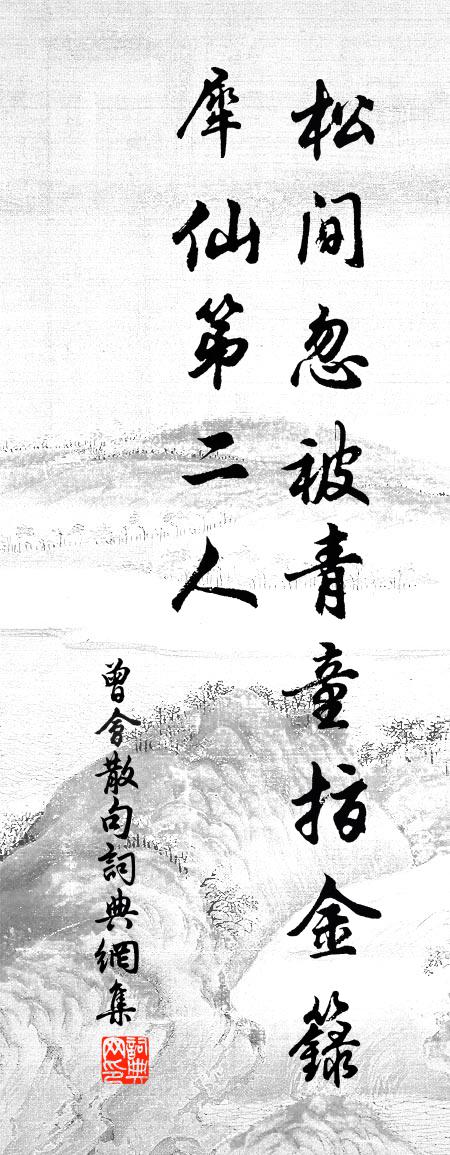 松間忽被青童指金籙
犀仙第二人
曾會散句詞典網集
詞典網印